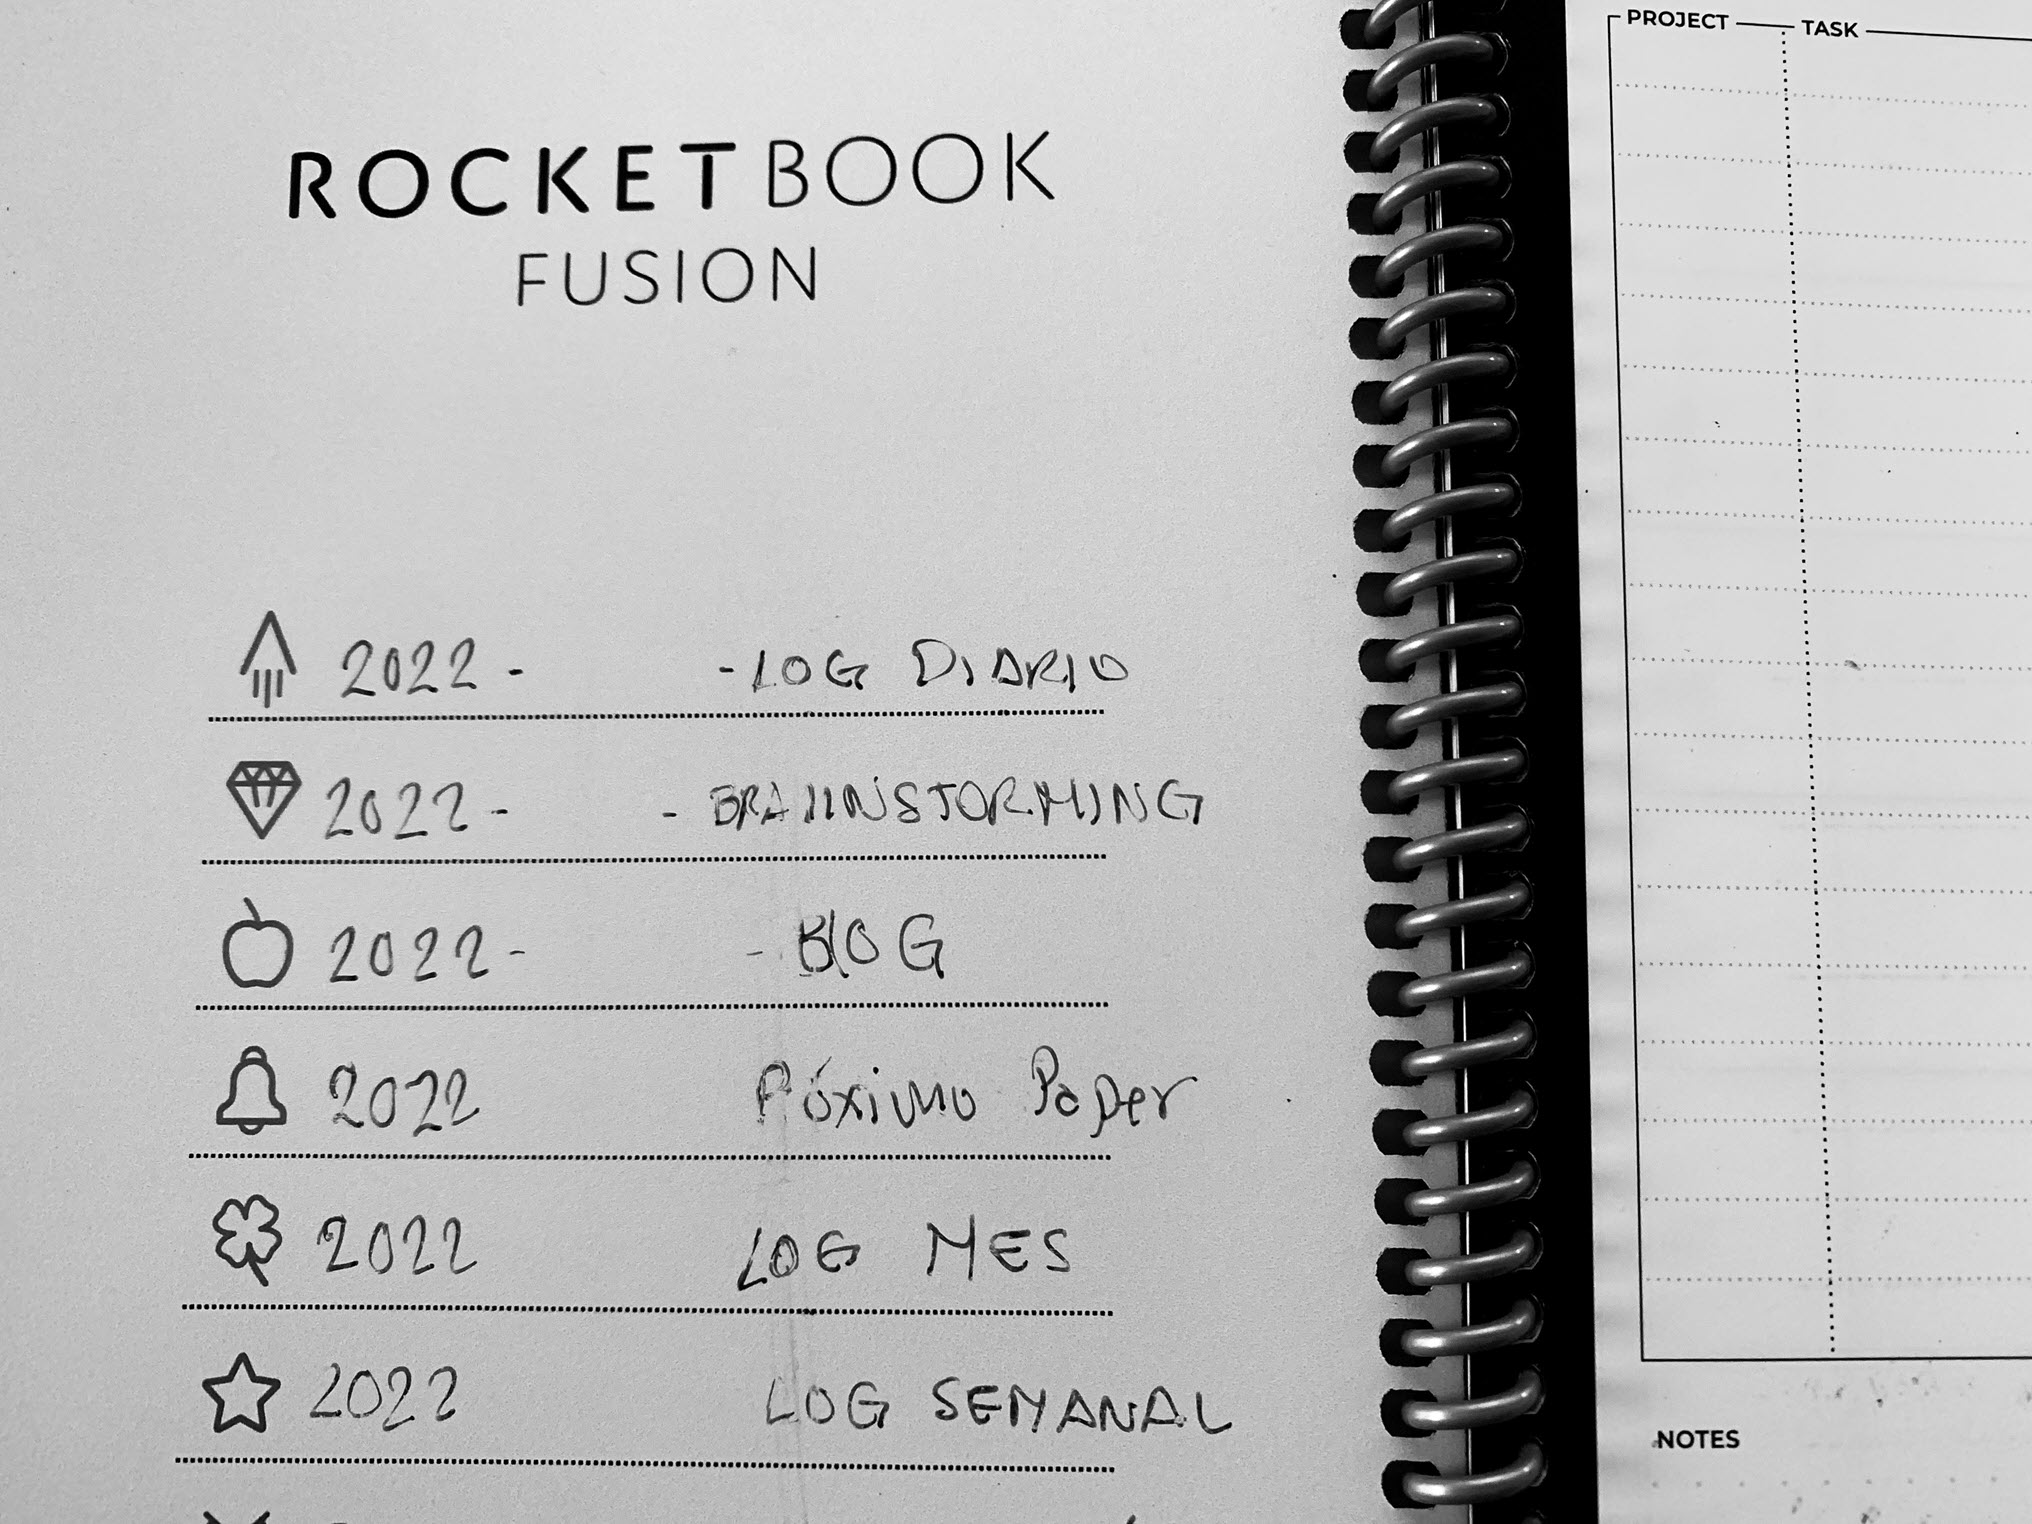 ROCKETBOOK
FUSION
2022 - - LOG DIARIO
2022 - - BRAIINSTORMING
2022 - - BLOG
2022 Póximo Paper
2022 LOG MES
2022 LOG SEMANAL
PROJECT TASK
NOTES